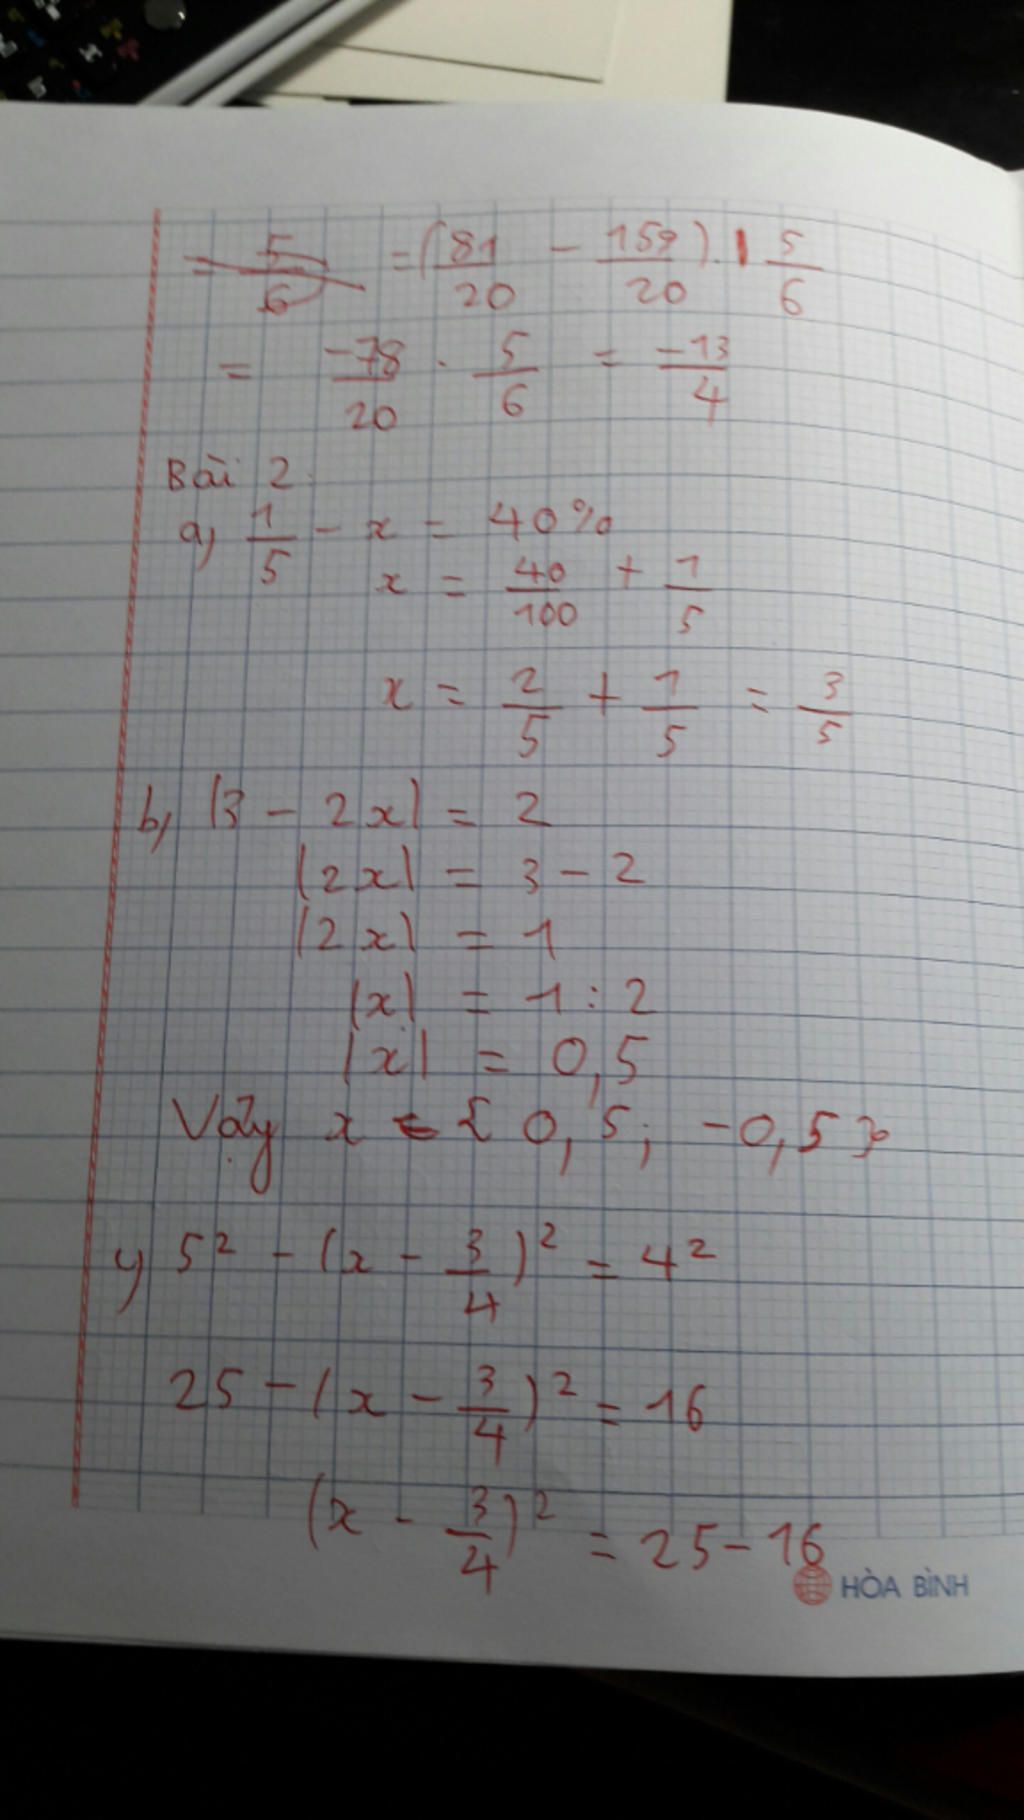 = 5/6 = (81/20 - 159/20) . 5/6
= -78/20 . 5/6 = -13/4
Bài 2.
a, 1/5 - x = 40%
x = 40/100 + 1/5
x = 2/5 + 1/5 = 3/5
b, |3 - 2x| = 2
|2x| = 3 - 2
|2x| = 1
|x| = 1 : 2
|x| = 0,5
Vậy x ∈ { 0,5; -0,5 }
y) 5² - (x - 3/4)² = 4²
25 - (x - 3/4)² = 16
(x - 3/4)² = 25 - 16
HÒA BÌNH